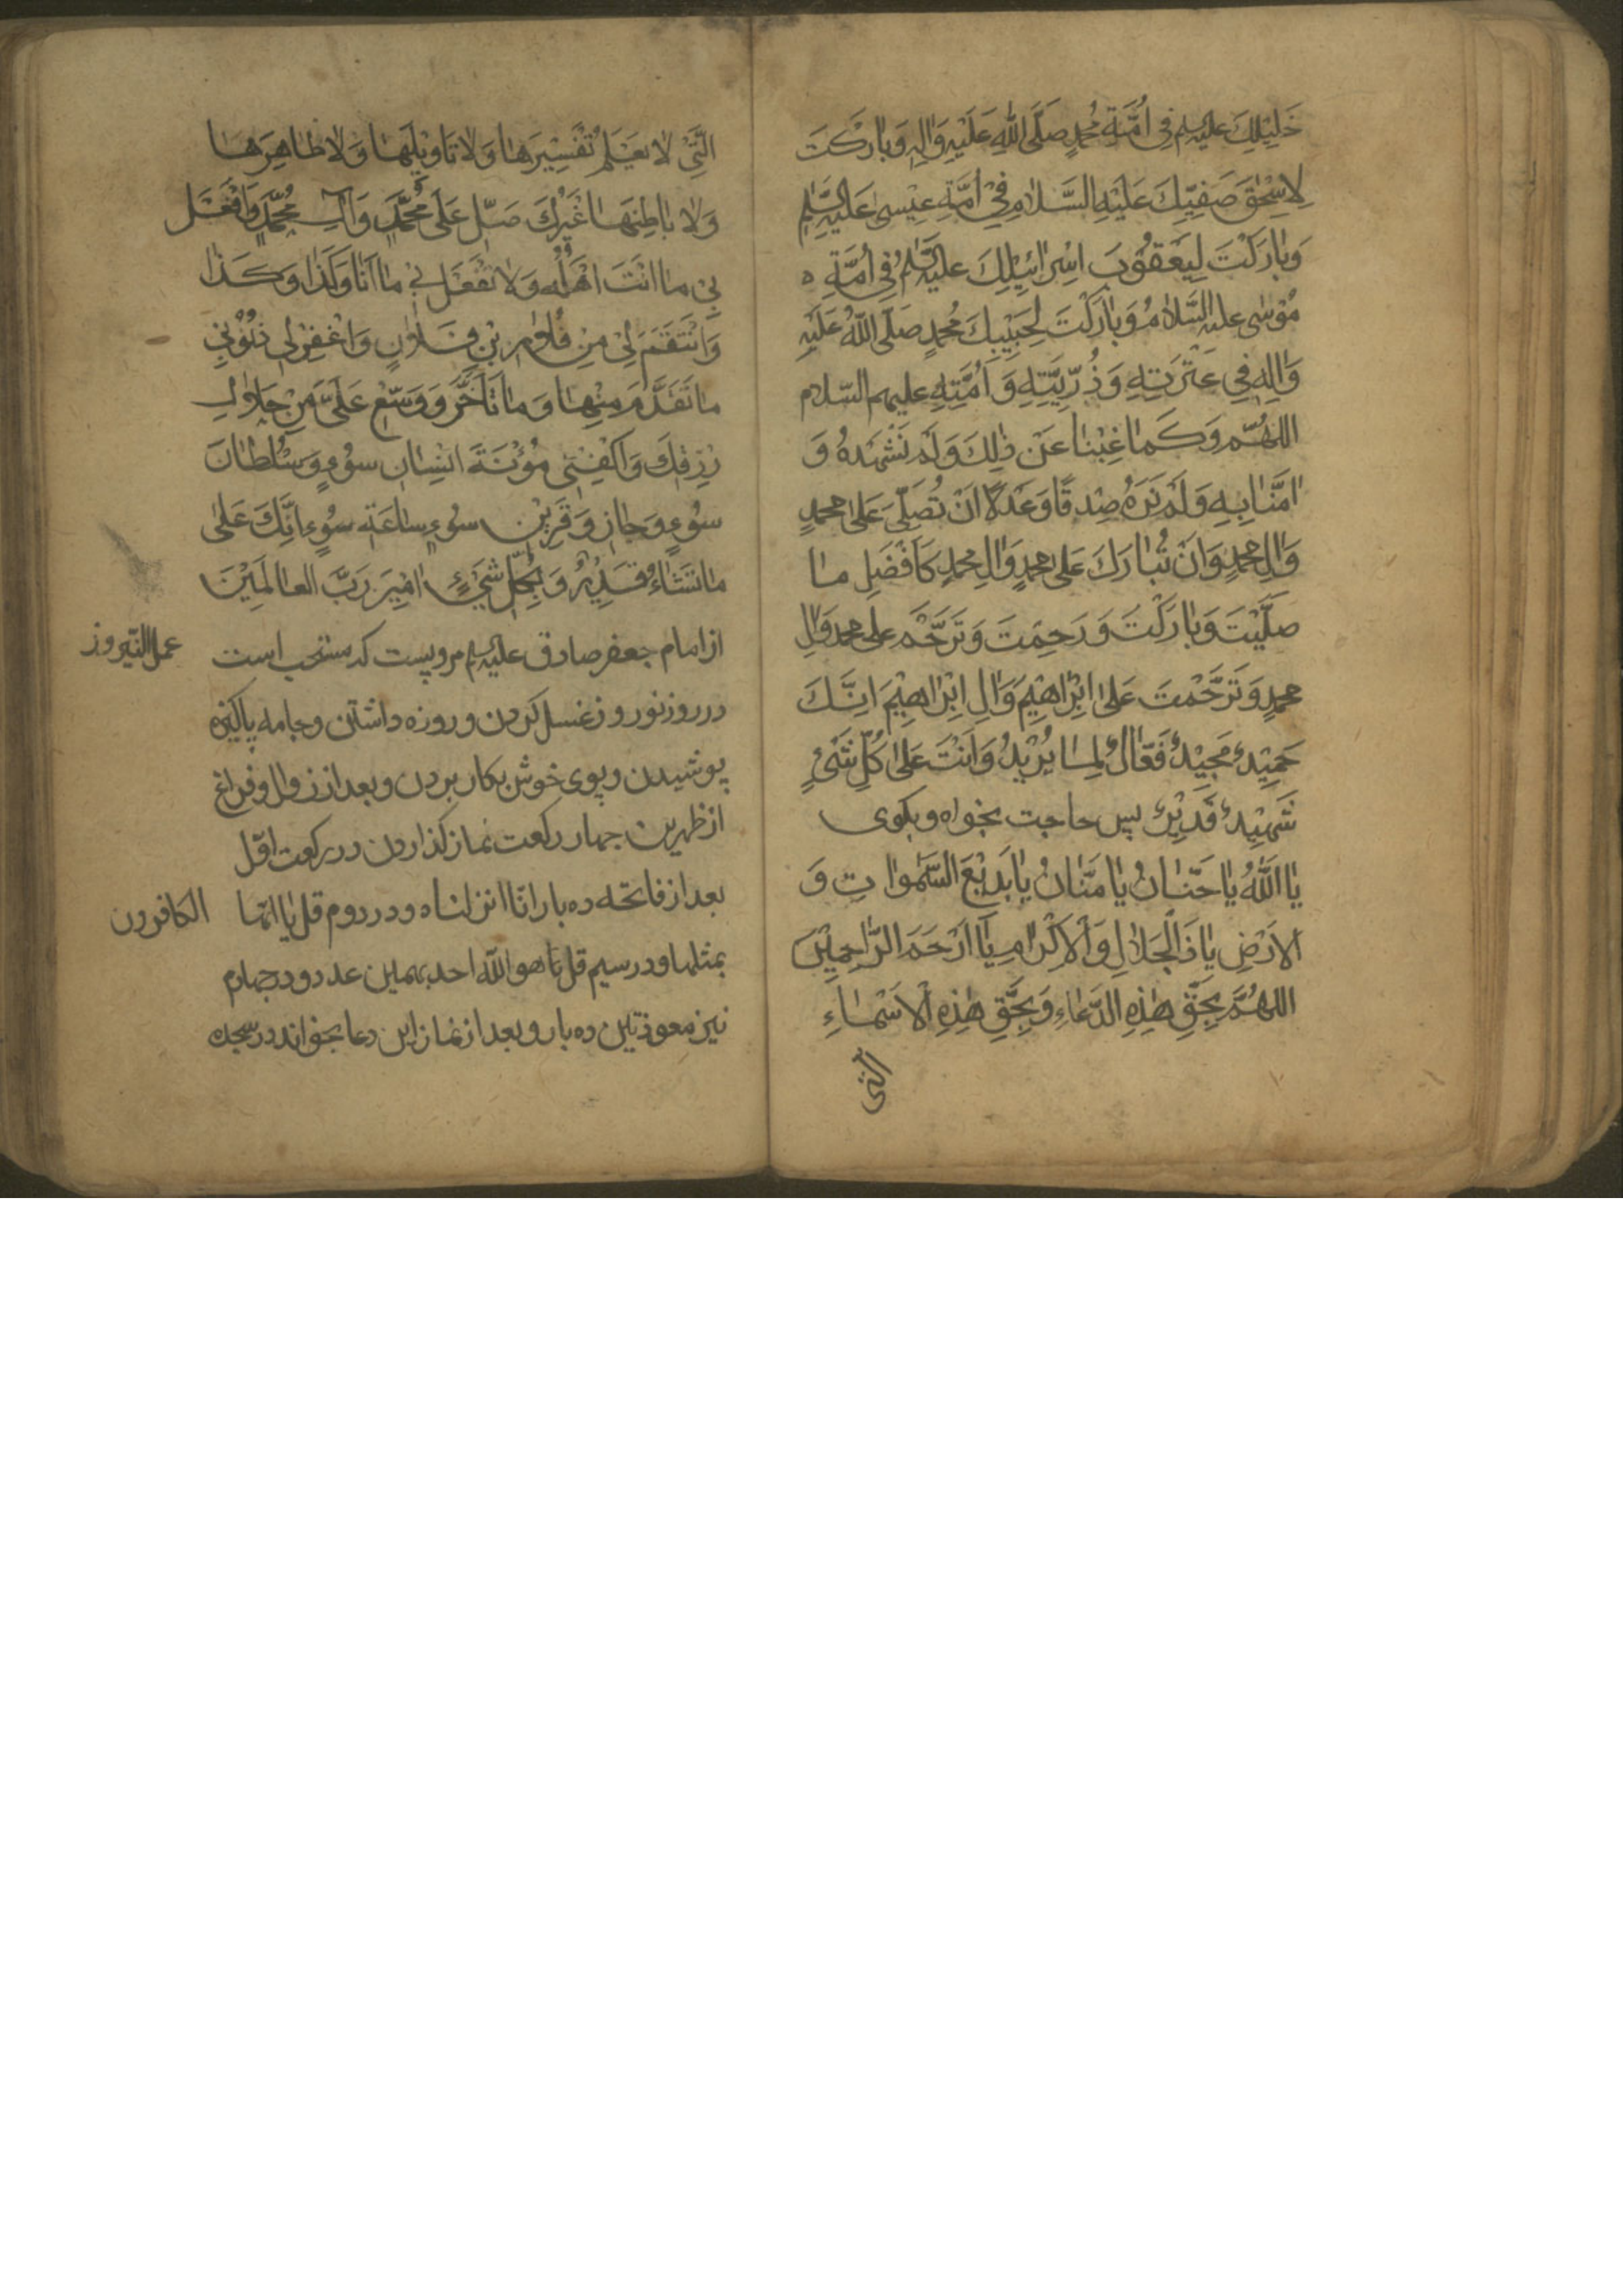 خَلِيْلِكَ عليه السلم فِى اُمَّةِ مُحمدٍ صَلَّى اللهِ عَلَيْهِ وَاٰلِهِ وَبٰارَكْتَ
لِاِسْحٰقَ صَفِيِّكَ عَلَيْهِ السَّلٰام فِيْ اُمَّةِ عِيْسىٰ عَلَيْهِ السَّلٰم
وَبٰارَكْتَ لِيَعْقُوْبَ اِسْرٰائِيْلِكَ عليه السَّلٰمُ فِى اُمَّةِ ه
مُوْسٰى عليه السَّلٰامُ وَبٰارَكْتَ لِحَبِيْبِكَ مُحمدٍ صَلَّى اللّٰهُ عَلَيْهِ
وَاٰلِهِ فِى عِتْرَتِهِ وَذُرِّيَّتِهِ وَ اُمَّتِهِ عليهم السّلام
اللهُمّ وَكَمٰا غِبْنٰا عَنْ ذٰلِكَ وَلَمْ نَشْهَدْهُ وَ
اٰمَنّٰا بِهِ وَلَمْ نَرَهُ صِدْقًا وَعَدْلًا اَنْ تُصَلِّىَ عَلىٰ محمدٍ
وَاٰلِ محمدٍ وَاَنْ تُبٰارَكَ عَلىٰ محمدٍ وَاٰلِ محمدٍ كَاَفْضَلِ مٰا
صَلَّيْتَ وَبٰارَكْتَ وَرَحِمْتَ وَتَرَحَّمْ على محمد وَاٰلِ
محمدٍ وَتَرَحَّمْتَ عَلىٰ اِبْرٰاهِيْمَ وَاٰلِ اِبْرٰاهِيْمَ اِنَّكَ
حَمِيْدٌ مَجِيْدٌ فَعّٰالٌ لِمٰا يُرْيدُ وَاَنْتَ عَلىٰ كُلِّ شَىْءٍ
شَهِيْدٌ قَدِيْرٌ پس حاجت بخواه و بكوى
يٰا اَللّٰهُ يٰا حَنّٰانُ يٰا مَنّٰانُ يٰا بَدِيْعَ السَّمٰوٰاتِ وَ
الاَرْضِ يٰا ذَالْجَلٰالِ وَالْاِكْرٰامِ يٰا اَرْحَمَ الرّٰاحِمِيْنَ
اللهُمَّ بِحَقِّ هٰذِهِ الدُّعٰاءِ وَبِحَقِّ هٰذِهِ الْاَسْمٰاءِ
الّتى
الَّتِيْ لٰا يَعْلَمُ تَفْسِيْرَهٰا وَلٰا تَاوِيْلَهٰا وَلٰا ظٰاهِرَهٰا
وَلٰا بٰاطِنَهٰا غَيْرُكَ صَلِّ عَلٰى مُحَمَّدٍ وَاٰلِ مُحَمَّدٍ وَافْعَلْ
بِيْ مٰا اَنْتَ اَهْلُهُ وَلٰا تَفْعَلْ بِيْ مٰا اَنَا وَكَذٰا وَكَذٰا
وَانْتَقِمْ لِيْ مِنْ فُلٰانِ بْنِ فُلٰانٍ وَاغْفِرْلِى ذُنُوْبِيْ
مٰا تَقَدَّمَ مِنْهٰا وَ مٰا تَاَخَّرَ وَوَسِّعْ عَلَىَّ مِنْ حَلٰالِ
رِزْقِكَ وَاكْفِنِى مُؤْنَةَ اِنْسٰانِ سَوْءٍ وَسُلْطٰانَ
سَوْءٍ وَجٰارِ وَ قَرِيْنِ سوءٍ سٰاعَتِهِ سَوْءٍ اِنَّكَ عَلىٰ
مٰا تَشٰاءُ قَدِيْرٌ وَ بِكُلِّ شَيْءٍ اٰمِيْنَ رَبَّ العالَمِيْنَ
از امام جعفر صادق عليه السلم مرويست كه مستحب است
عمل النّيروز
در روز نوروز غسل كردن و روزه داشتن وجامه پاكيزه
پوشيدن وبوى خوش بكار بردن و بعد از زوال و فراغ
از ظهرين جهار ركعت نماز كذاردن در ركعت اوّل
بعد از فاتحه ده بار انّا انزلناه و در دوم قل يا ايّها
الكافرون
بمثلها و در سيم قل هو اللّه احد بهمين عدد و در جهارم
نيز معوذتين ده بار و بعد از نماز اين دعا بخواند در سجده